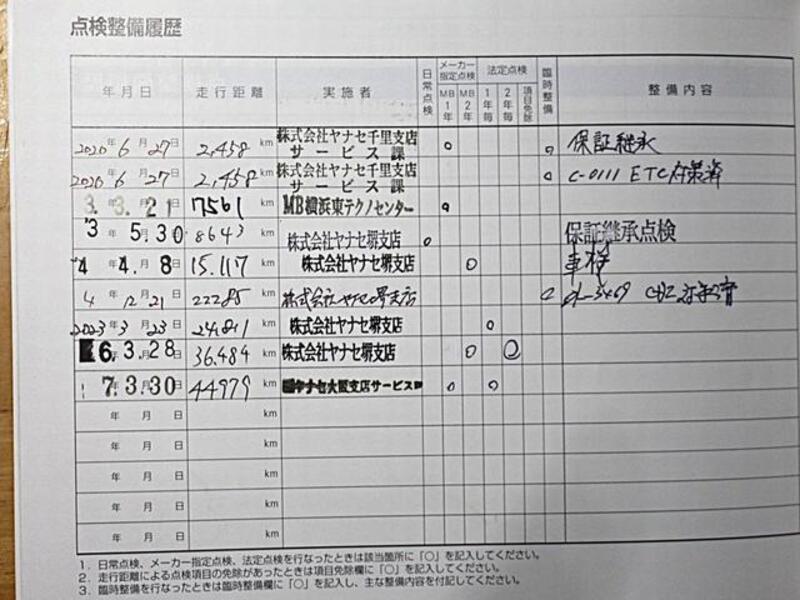 点検整備履歴
年月日 走行距離 実施者 日常点検 メーカー指定点検 MB1年 MB2年 法定点検 1年毎 2年毎 項目免除 臨時整備 整備内容
2020年6月27日 2,458km 株式会社ヤナセ千里支店 サービス課 ○ ○ 保証継承
2020年6月27日 2,458km 株式会社ヤナセ千里支店 サービス課 ○ C-0111 ETC対策済
3. 3. 21 7561km MB横浜東テクノセンター ○
'3年 5. 30 8643km 株式会社ヤナセ堺支店 ○ 保証継承点検
'4 4. 8日 15.117km 株式会社ヤナセ堺支店 ○ 車検
4年12月21日 22285km 株式会社ヤナセ堺支店 ○
2023年3月23日 24.841km 株式会社ヤナセ堺支店 ○
6. 3. 28日 36.484km 株式会社ヤナセ堺支店 ○ ○
7. 3. 30 44979km ヤナセ大阪支店サービス ○ ○
年 月 日 km
年 月 日 km
年 月 日 km
年 月 日 km
年 月 日 km
1. 日常点検、メーカー指定点検、法定点検を行なったときは該当箇所に「○」を記入してください。
2. 走行距離による点検項目の免除があったときは項目免除欄に「○」を記入してください。
3. 臨時整備を行なったときは臨時整備欄に「○」を記入し、主な整備内容を付記してください。